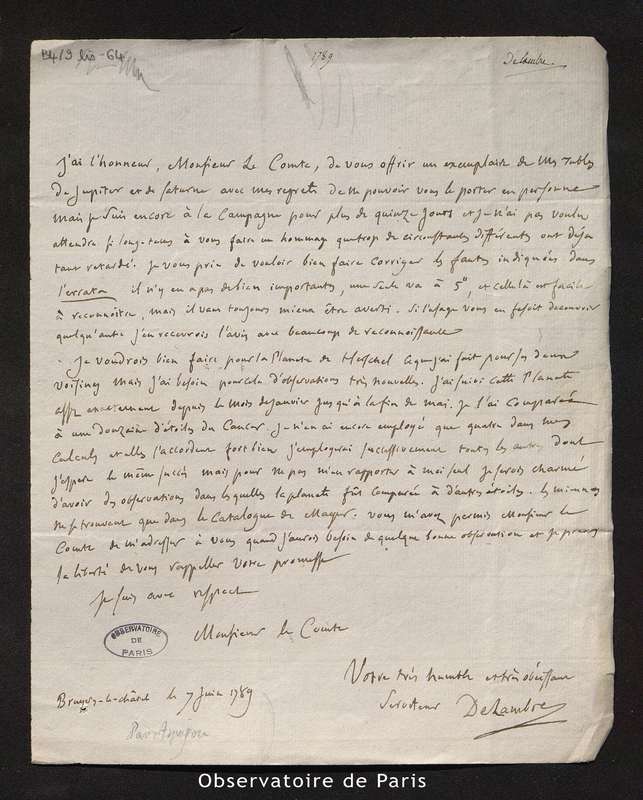 B4/9 bis-64
1789
Delambre.
J'ai l'honneur, Monsieur Le Comte, de vous offrir un exemplaire de mes Tables
de Jupiter et de Saturne avec mes regrets de ne pouvoir vous le porter en personne
mais je suis encore à la Campagne pour plus de quinze jours et je n'ai pas voulu
attendre si long-tems à vous faire un hommage que trop de circonstances différentes ont deja
tant retardé. Je vous prie de vouloir bien faire corriger les fautes indiquées dans
l'errata il n'y en a pas de bien importantes, une seule va à 5", et celle là est facile
à reconnoitre, mais il vaut toujours mieux être averti. Si l'usage vous en faisoit decouvrir
quelqu'autre j'en recevrois l'avis avec beaucoup de reconnoissance
Je voudrois bien faire pour la Planete de Herschel ce que j'ai fait pour ses deux
voisines mais j'ai besoin pour cela d'observations très nouvelles. J'ai suivi cette Planete
assez exactement depuis le mois de janvier jusqu'à la fin de mai. Je l'ai comparée
à une douzaine d'étoiles du Cancer. Je n'en ai encore employé que quatre dans mes
calculs et elles s'accordent fort bien j'employerai successivement toutes les autres dont
j'espere le même succès mais pour ne pas m'en rapporter à moi seul je serois charmé
d'avoir des observations dans lesquelles la planete fût comparée à d'autres étoiles. les miennes
ne se trouvent que dans le Catalogue de Mayer. vous m'avez permis Monsieur le
Comte de m'adresser à vous quand j'aurois besoin de quelque bonne observation et je prens
la liberté de vous rappeller votre promesse
Je suis avec respect
Monsieur le Comte
OBSERVATOIRE
DE
PARIS
Votre très humble et très obéissant
Serviteur Delambre
Bruyeres-le-châtel le 7 Juin 1789
Observatoire de Paris